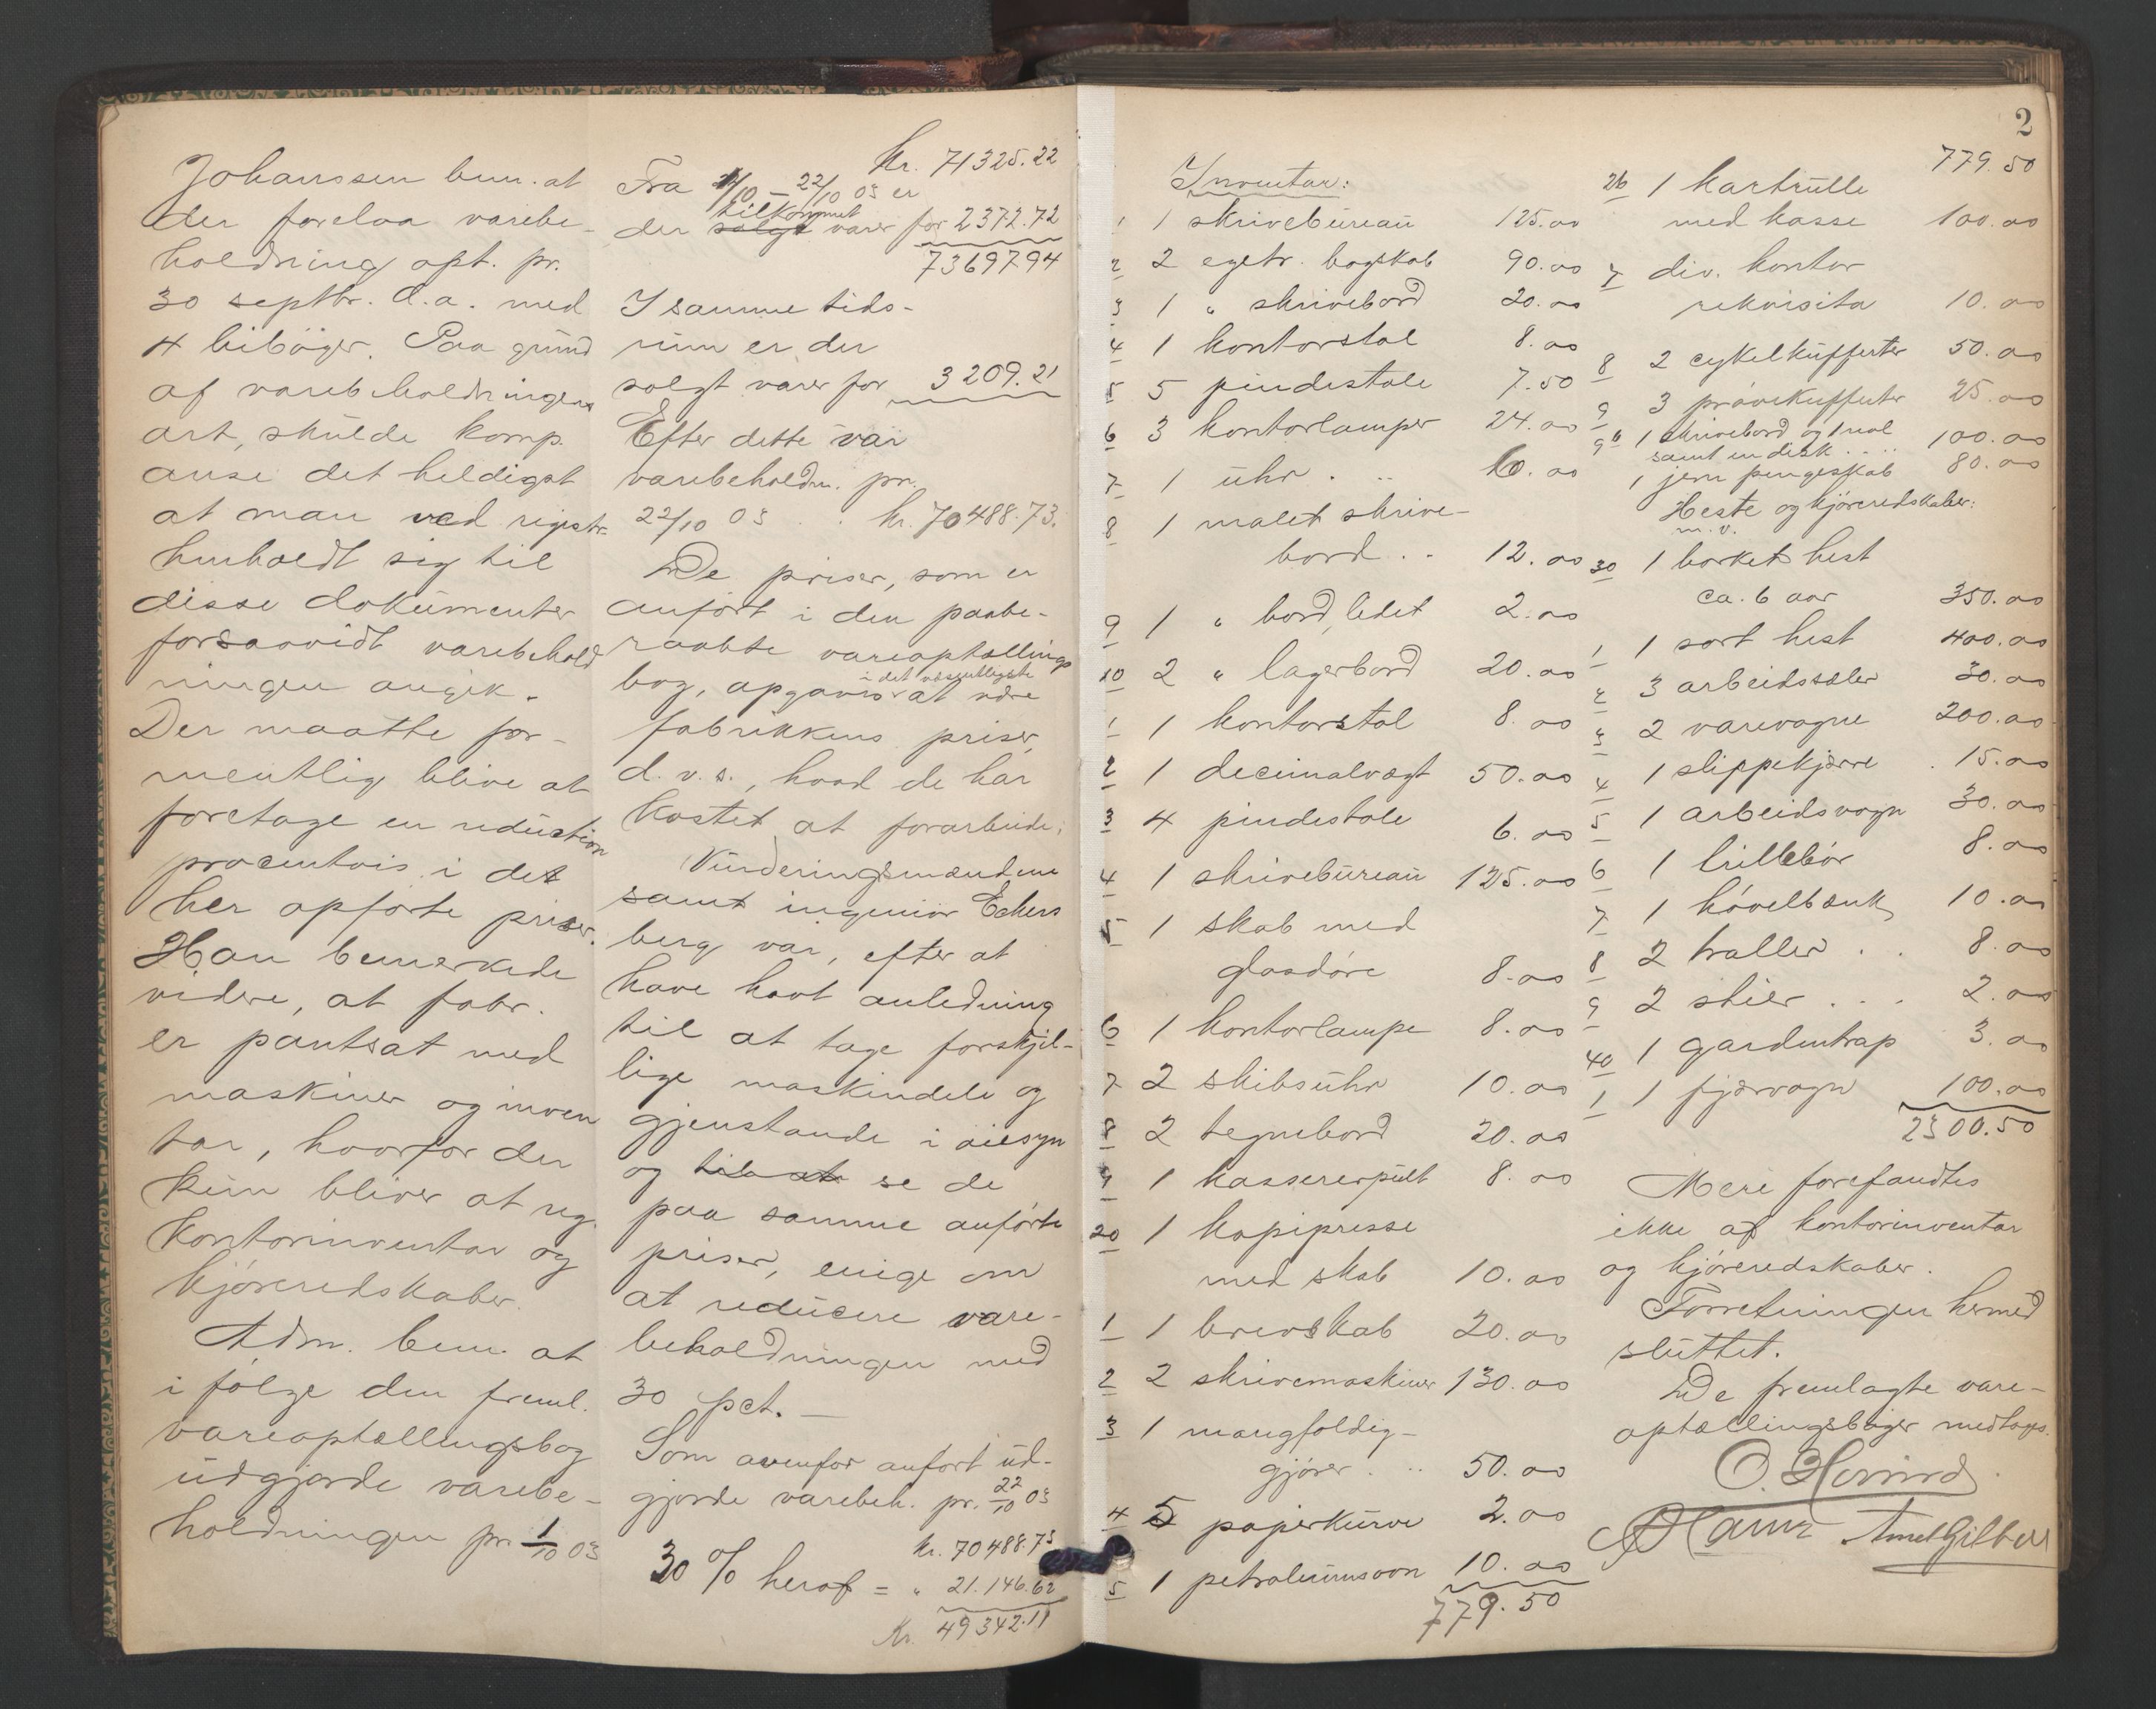 Johanssen bem. at
der forelaa varebe-
holdning opt. pr.
30 septbr. d.a. med
4 bibøger. Paa grund
af varebeholdningens
art, skulde komp.
anse det heldigst
at man ved registr.
henholdt sig til
disse dokumenter
forsaavidt varebehold
ningen angik.
Der maatte for-
mentlig blive at
foretage en reduction
procentvis i det
her opførte priser.
Han bemerkede
videre, at fabr.
er pantsat med
maskiner og inven
tar, hvorfor der
kun bliver at reg.
kontorinventar og
kjøreredskaber.
Adm. bem. at
i følge den freml.
vareoptællingsbog
udgjorde varebe-
holdningen pr. 1/10 03
kr. 71325.22
Fra 1/10 – 22/10 03 er
tilkommet
der solgt varer for 2372.72
73697.94
I samme tids-
rum er der
solgt varer for 3209.21
Efter dette var
varebeholdn. pr.
22/10 03 . . kr. 70488.73.
De priser, som er
anført i den paabe-
raabte vareoptællings
i det væsentligste
bog, opgaves at være
fabrikkens priser,
d.v.s., hvad de har
kostet at forarbeide;
Vurderingsmændene
samt ingeniør Eckers
berg var, efter at
have havt anledning
til at tage forskjel-
lige maskindele og
gjenstande i øiesyn
og se de
paa samme anførte
priser, enige om
at reducere vare-
beholdningen med
30 pct. —
Som ovenfor anført ud-
gjorde varebeh. pr. 22/10 03
kr. 70488.73
30 % heraf = " 21.146.62
Kr. 49342.11
2
Inventar:
1 1 skrivebureau 125.00
2 2 egetr. bogskab 90.00
3 1 " skrivebord 20.00
4 1 kontorstol 8.00
5 5 pindestole 7.50
6 3 kontorlamper 24.00
7 1 uhr . .. 6.00
8 1 malet skrive-
bord .. 12.00
9 1 " bord, ledet 2.00
10 2 " lagerbord 20.00
1 1 kontorstol 8.00
2 1 decimalvægt 50.00
3 4 pindestole 6.00
4 1 skrivebureau 125.00
5 1 skab med
glasdøre 8.00
6 1 kontorlampe 8.00
7 2 skibsuhr 10.00
8 2 tegnebord 20.00
9 1 kassererpult 8.00
20 1 kopipresse
med skab 10.00
1 1 brevskab 20.00
2 2 skrivemaskiner 130.00
3 1 mangfoldig-
gjører . .. 50.00
4 5 papirkurve 2.00
5 1 petroleumsovn 10.00
779.50
779.50
26 1 kartrulle
med kasse 100.00
7 div. kontor
rekvisita 10.00
8 2 cykelkufferter 50.00
9 3 prøvekufferter 25.00
9b 1 skrivebord og 1 reol 100.00
samt en disk . . ..
1 jern pengeskab 80.00
Heste og kjøreredskaber:
m.v.
30 1 borket hest
ca. 6 aar 350.00
1 1 sort hest 400.00
2 3 arbeidssæler 30.00
3 2 varevogne 200.00
4 1 slippekjærre . 15.00
5 1 arbeidsvogn 30.00
6 1 trillebør 8.00
7 1 høvelbænk 10.00
8 2 traller . . 8.00
9 2 stier . . . 2.00
40 1 gardintrap 3.00
1 1 fjærvogn 100.00
2300.50
Mere forefandtes
ikke af kontorinventar
og kjøreredskaber.
Forretningen hermed
sluttet.
De fremlagte vare-
optællingsbøger medtoges.